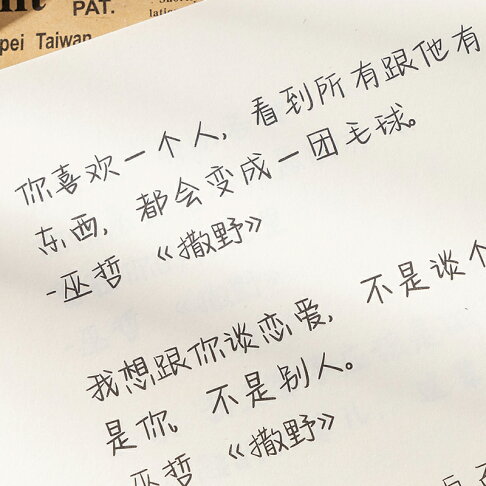 PAT.
pei Taiwan
你喜欢一个人，看到所有跟他有
东西，都会变成一团毛球。
-巫哲 《撒野》
我想跟你谈恋爱，不是谈个
是你。不是别人。
巫哲 《撒野》